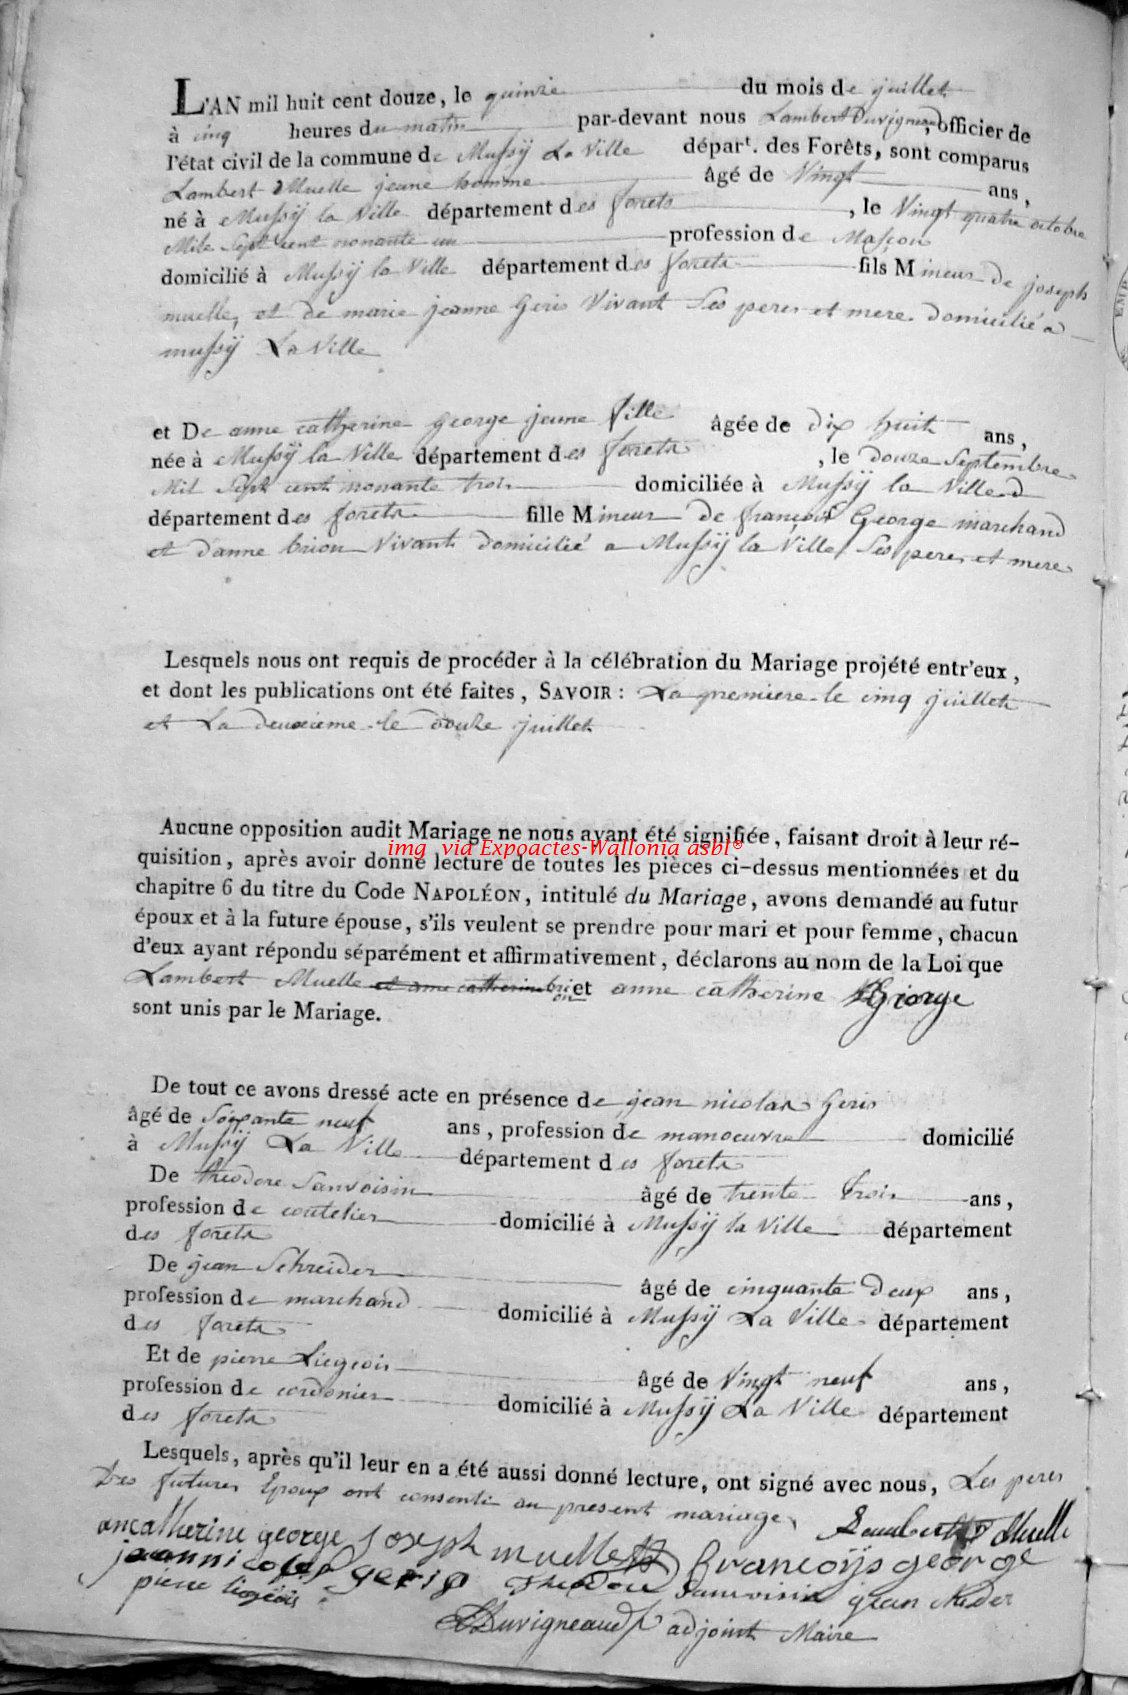 L'AN mil huit cent douze, le quinze du mois de juillet
à cinq heures du matin par-devant nous Lambert Duvigneaud, officier de
l'état civil de la commune de Mussÿ La Ville départ. des Forêts, sont comparus
Lambert Muelle jeune homme âgé de Vingt ans,
né à Mussÿ la Ville département des forets, le Vingt quatre octobre
Mile Sept cent nonante un profession de Maçon
domicilié à Mussÿ la Ville département des forets fils Mineur de joseph
muelle, et de marie jeanne Geris Vivant Ses peres et mere domicilié a
mussÿ La Ville
et De anne catherine George jeune fille âgée de dix huit ans,
née à Mussÿ la Ville département des forets, le douze Septembre
Mil Sept cent nonante trois domiciliée à Mussÿ la Ville d
département des forets fille Mineur de françois George marchand
et d'anne brion Vivant domicilié a Mussÿ la Ville Ses peres et mere
Lesquels nous ont requis de procéder à la célébration du Mariage projété entr'eux,
et dont les publications ont été faites, SAVOIR : La premiere le cinq juillet
et La deuxieme le douze juillet
Aucune opposition audit Mariage ne nous ayant été signifiée, faisant droit à leur ré-
img via Expoactes-Wallonia asbl®
quisition, après avoir donné lecture de toutes les pièces ci-dessus mentionnées et du
chapitre 6 du titre du Code NAPOLÉON, intitulé du Mariage, avons demandé au futur
époux et à la future épouse, s'ils veulent se prendre pour mari et pour femme, chacun
d'eux ayant répondu séparément et affirmativement, déclarons au nom de la Loi que
Lambert Muelle et anne catherine brion et anne catherine George
sont unis par le Mariage.
De tout ce avons dressé acte en présence de jean nicolas Geris
âgé de Soixante neuf ans, profession de manoeuvre domicilié
à Mussÿ La Ville département des forets
De theodore Sanvoisin âgé de trente trois ans,
profession de coutelier domicilié à Mussÿ la Ville département
des forets
De jean Schreider âgé de cinquante deux ans,
profession de marchand domicilié à Mussÿ La Ville département
des forets
Et de pierre Liegeois âgé de Vingt neuf ans,
profession de cordonier domicilié à Mussÿ La Ville département
des forets
Lesquels, après qu'il leur en a été aussi donné lecture, ont signé avec nous, Les peres
Des futures Epoux ont consenti au present mariage
ancatherine george Joseph muelle Lambert Muelle
francoijs george
jeannicolas geris Theodore Sanvoisin jean
pierre liegeois
Duvigneaud adjoint Maire